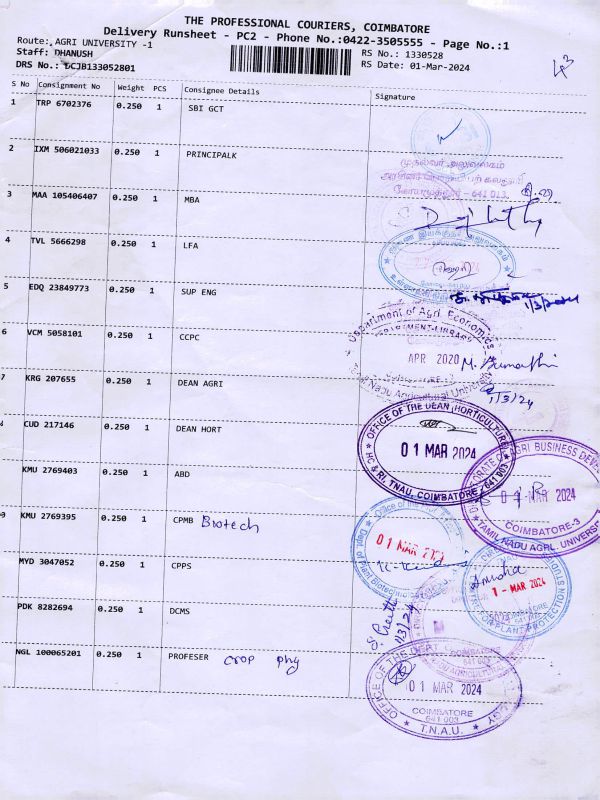 THE PROFESSIONAL COURIERS, COIMBATORE
Delivery Runsheet - PC2 - Phone No.:0422-3505555 - Page No.:1
Route: AGRI UNIVERSITY -1
RS No.: 1330528
Staff: DHANUSH
RS Date: 01-Mar-2024
DRS No.: DCJB133052801
S No Consignment No Weight PCS Consignee Details Signature
1 TRP 6702376 0.250 1 SBI GCT
2 IXM 506021033 0.250 1 PRINCIPALK
முதல்வர் அலுவலகம்
கோயமுத்தூர் - 641 013.
3 MAA 105406407 0.250 1 MBA
4 TVL 5666298 0.250 1 LFA
5 EDQ 23849773 0.250 1 SUP ENG
1/3/2024
Department of Agri. Economics
DEPARTMENT-LIBRARY
6 VCM 5058101 0.250 1 CCPC
APR 2020
Tamil Nadu Agricultural University
7 KRG 207655 0.250 1 DEAN AGRI
1/3/24
OFFICE OF THE DEAN (HORTICULTURE)
CUD 217146 0.250 1 DEAN HORT
01 MAR 2024
HC & RI, TNAU, COIMBATORE - 641 003
KMU 2769403 0.250 1 ABD
DIRECTORATE OF AGRI BUSINESS DEVE
01 MAR 2024
COIMBATORE-3
TAMIL NADU AGRL. UNIVERS
9 KMU 2769395 0.250 1 CPMB Biotech
Office of the
01 MAR 2024
Plant Biotechnology
MYD 3047052 0.250 1 CPPS
Anusha
1 - MAR 2024
PLANT PROTECTION STUDIES
PDK 8282694 0.250 1 DCMS
1/3/24
NGL 100065201 0.250 1 PROFESER crop phy
OFFICE OF THE
01 MAR 2024
COIMBATORE
641 003
T.N.A.U.